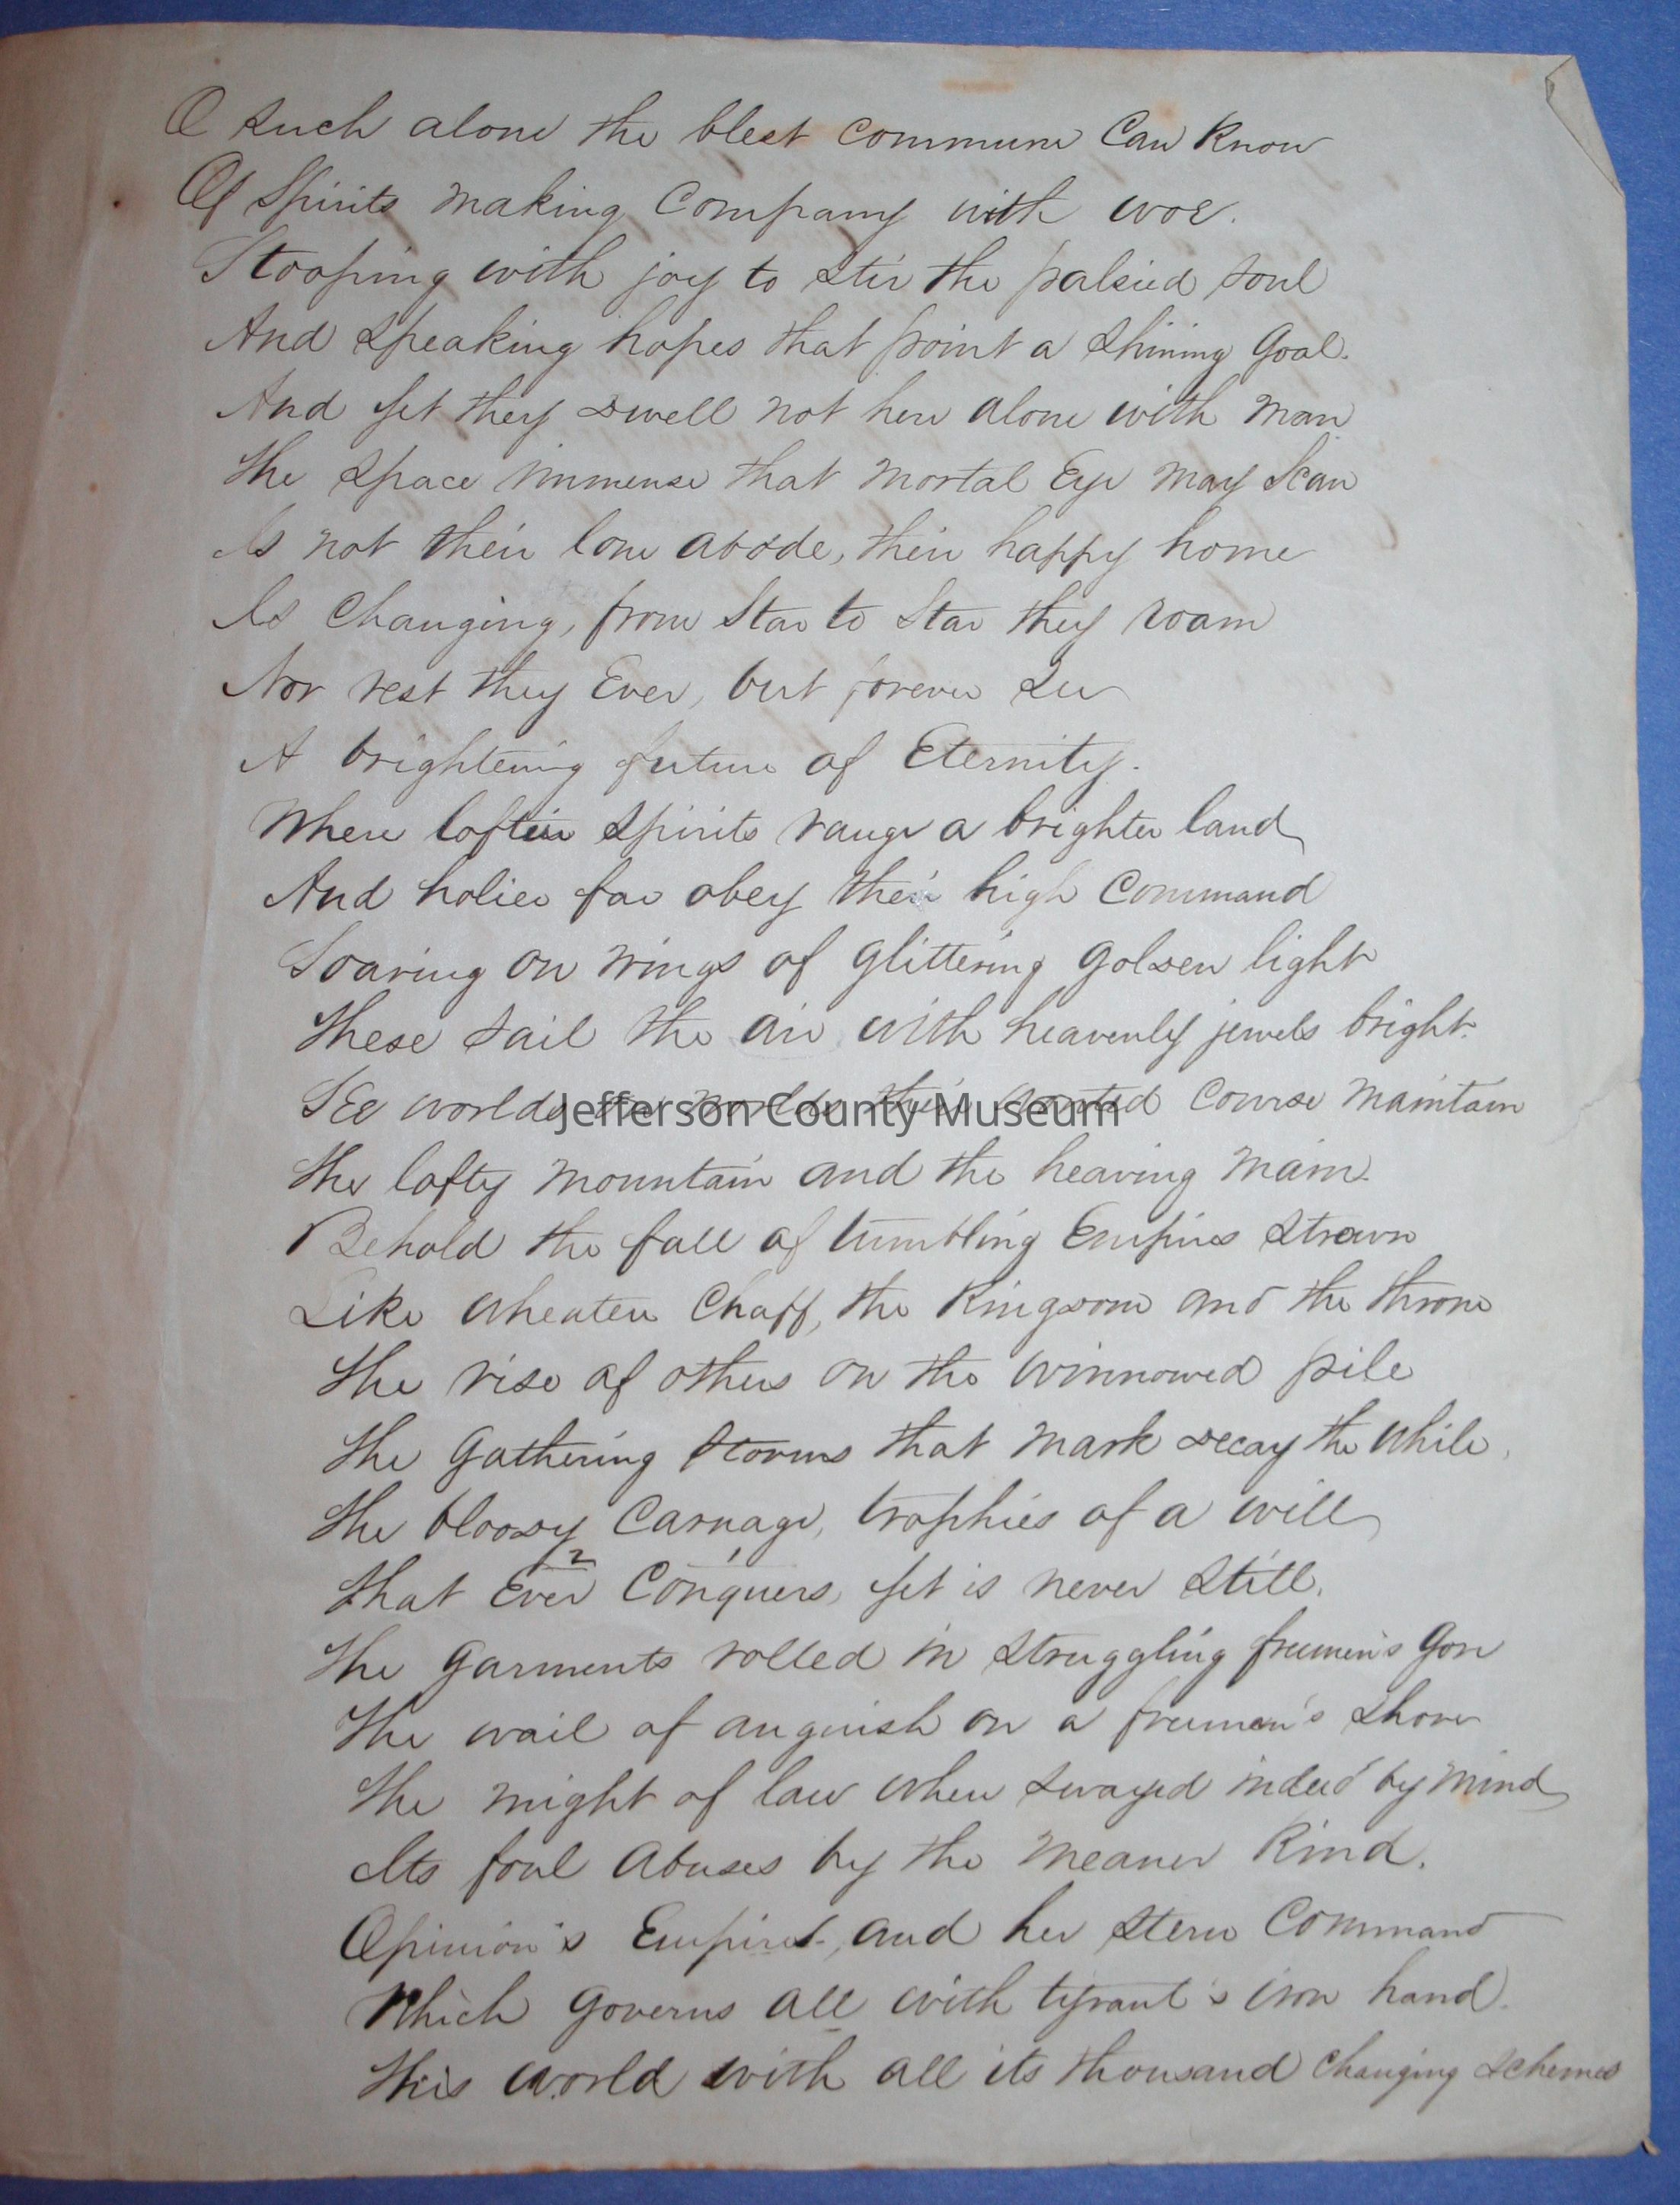 O such alone the blest commune Can Know
Of Spirits making Company with woe.
Stooping with joy to stir the palsied soul
And speaking hopes that point a shining Goal.
And yet they dwell not here alone with man
The space immense that mortal Eye may Scan
Is not their lone abode, their happy home
Is Changing, from Star to Star they roam
Nor rest they Ever, but forever See
A brightening future of Eternity.
Where loftier spirits range a brighter land
And holier far obey their high Command
Soaring on wings of glittering golden light
These sail the air with heavenly jewels bright.
See worlds on worlds their wonted Course maintain
The lofty mountain and the heaving main.
Behold the fall of tumbling Empires strewn
Like wheaten Chaff, the Kingdom and the throne
The rise of others on the winnowed pile
The Gathering storms that mark decay the while,
The bloody Carnage, trophies of a will
2 1
That Ever Conquers, yet is never still.
The Garments rolled in struggling freemen's Gore
The wail of anguish on a freeman's shore
The might of law when swayed indeed by mind
Its foul abuses by the meaner Kind.
Opinion's Empire, and her stern Command
Which Governs all with tyrant's iron hand.
This world with all its thousand Changing schemes
Jefferson County Museum